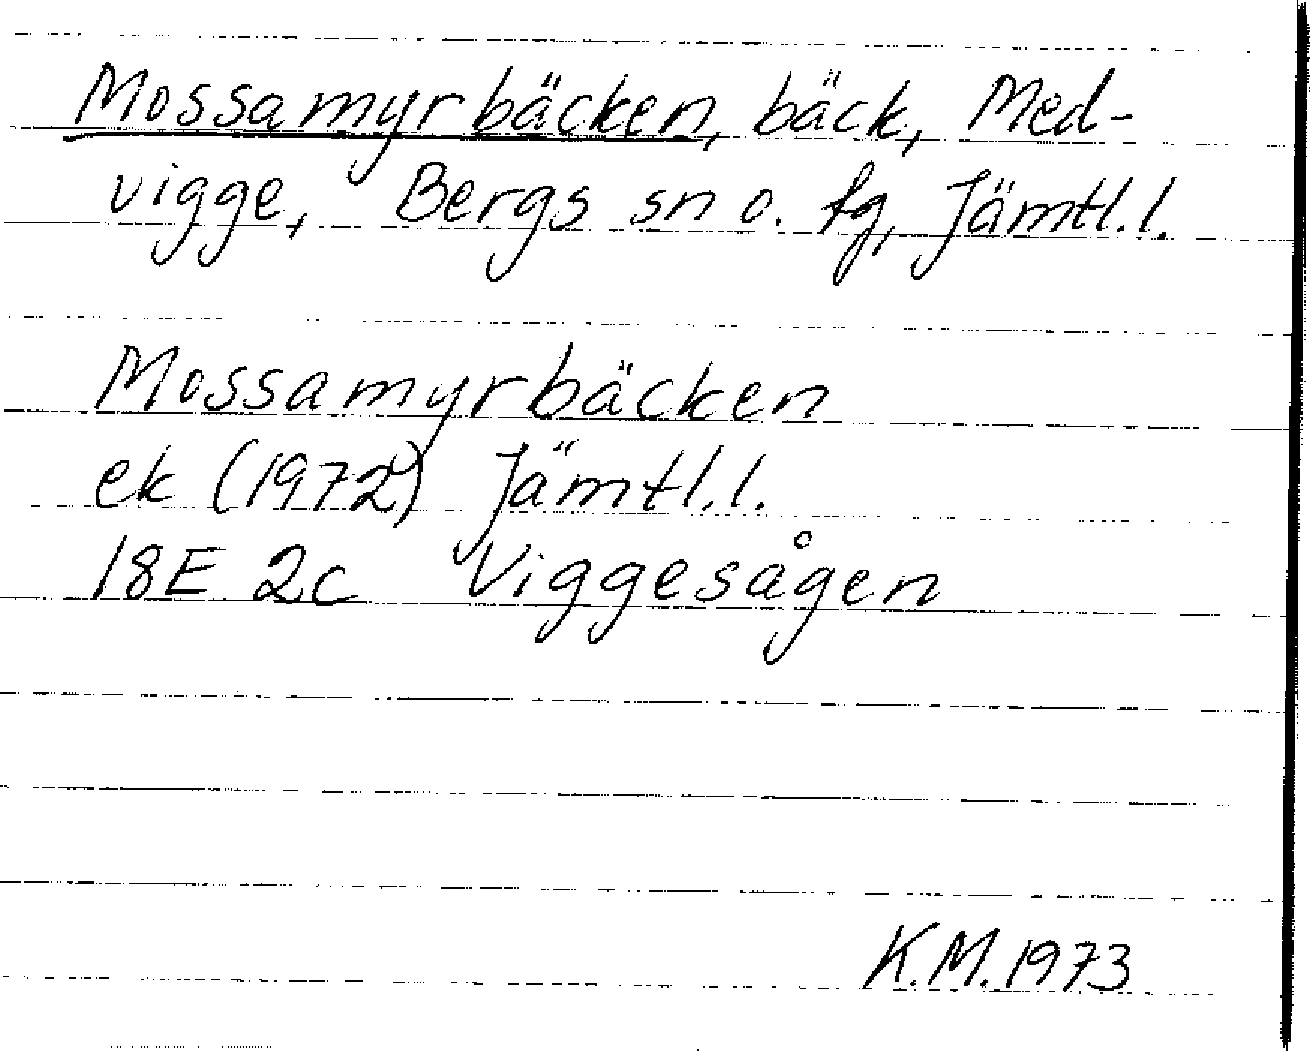 Mossamyrbäcken, bäck, Med-
vigge, Bergs sn o. tg, Jämtl.l.
Mossamyrbäcken
ek (1972) Jämtl.l.
18E 2c Viggesågen
K.M.1973